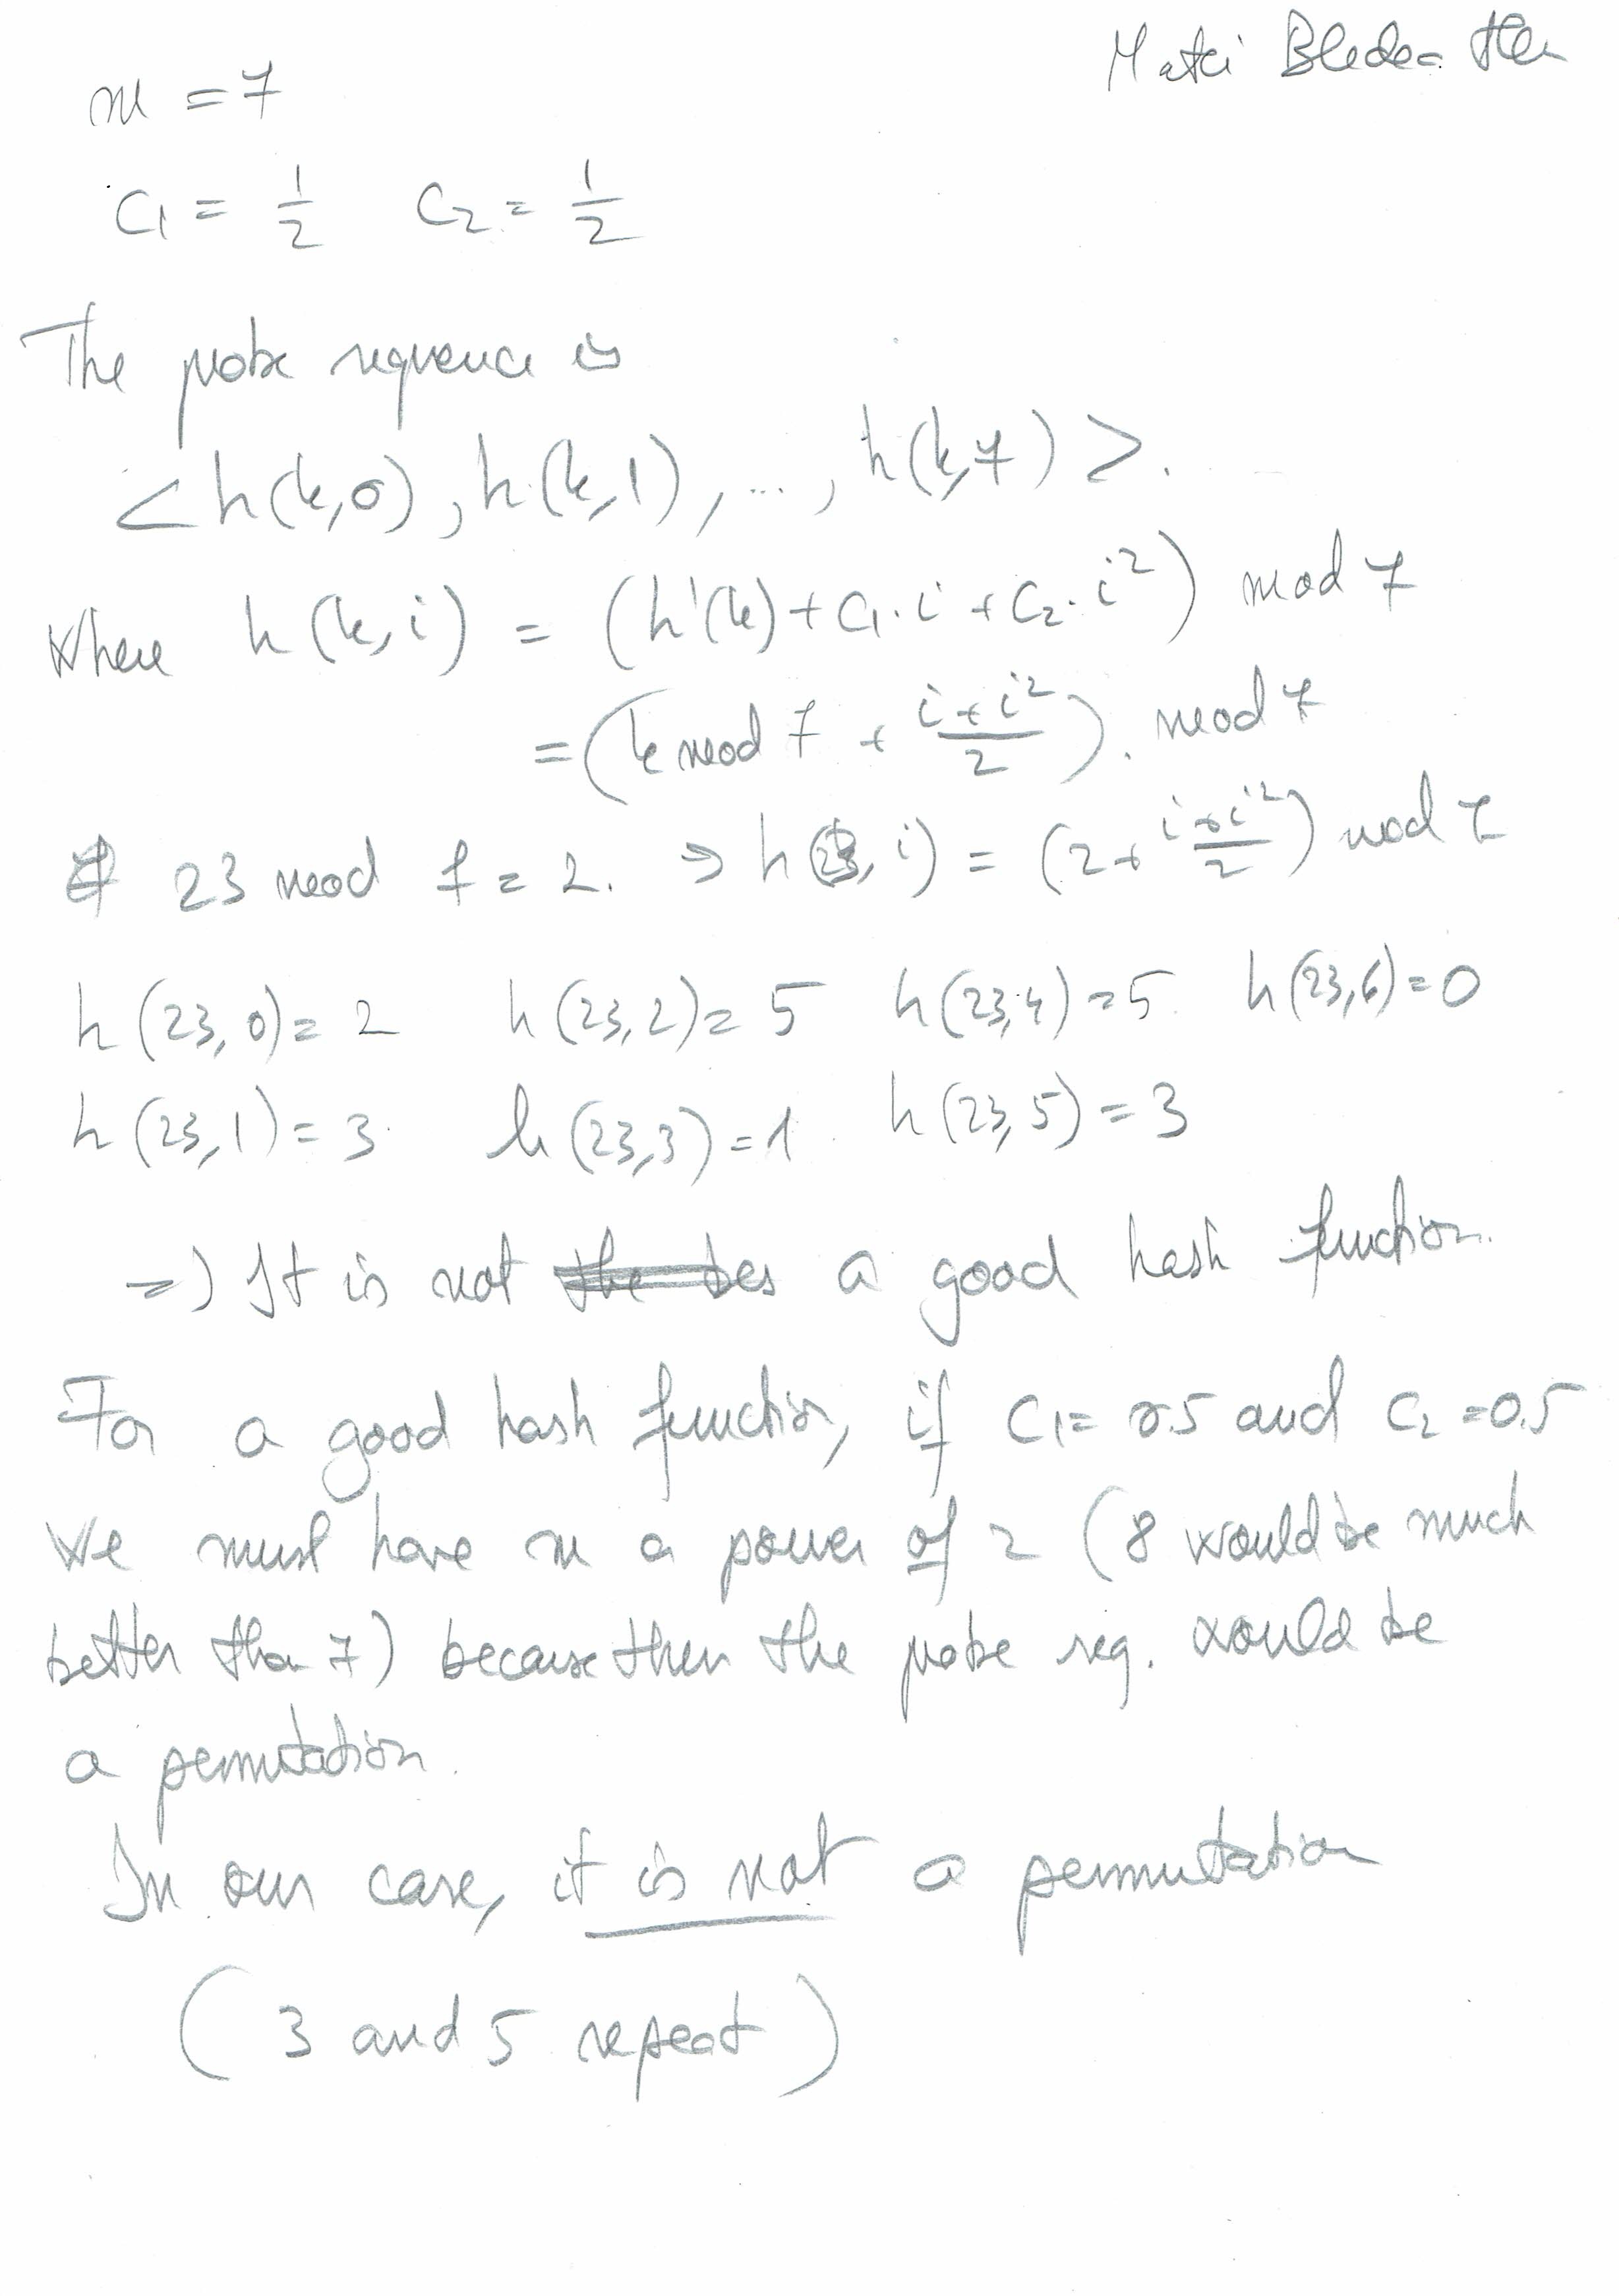 Matei
m = 7
C1 = 1/2 C2 = 1/2
The probe sequence is
<h(k,0), h(k,1), ..., h(k,7)>.
Where h(k,i) = (h'(k) + C1·i + C2·i²) mod 7
= (k mod 7 + (i+i²)/2). mod 7
23 mod 7 = 2. => h(23, i) = (2 + (i+i²)/2) mod 7
h(23,0) = 2 h(23,2) = 5 h(23,4) = 5 h(23,6) = 0
h(23,1) = 3 h(23,3) = 1 h(23,5) = 3
=> It is not a good hash function.
For a good hash function, if C1 = 0.5 and C2 = 0.5
We must have m a power of 2 (8 would be much
better than 7) because then the probe seq. would be
a permutation.
In our case, it is not a permutation
(3 and 5 repeat)